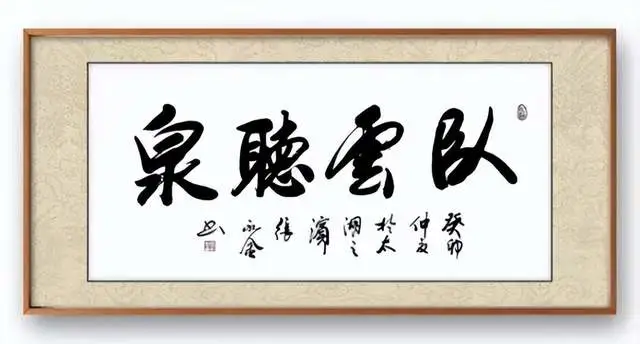 臥雲聽泉
癸卯
仲夏
於太
湖之
濱
張
书